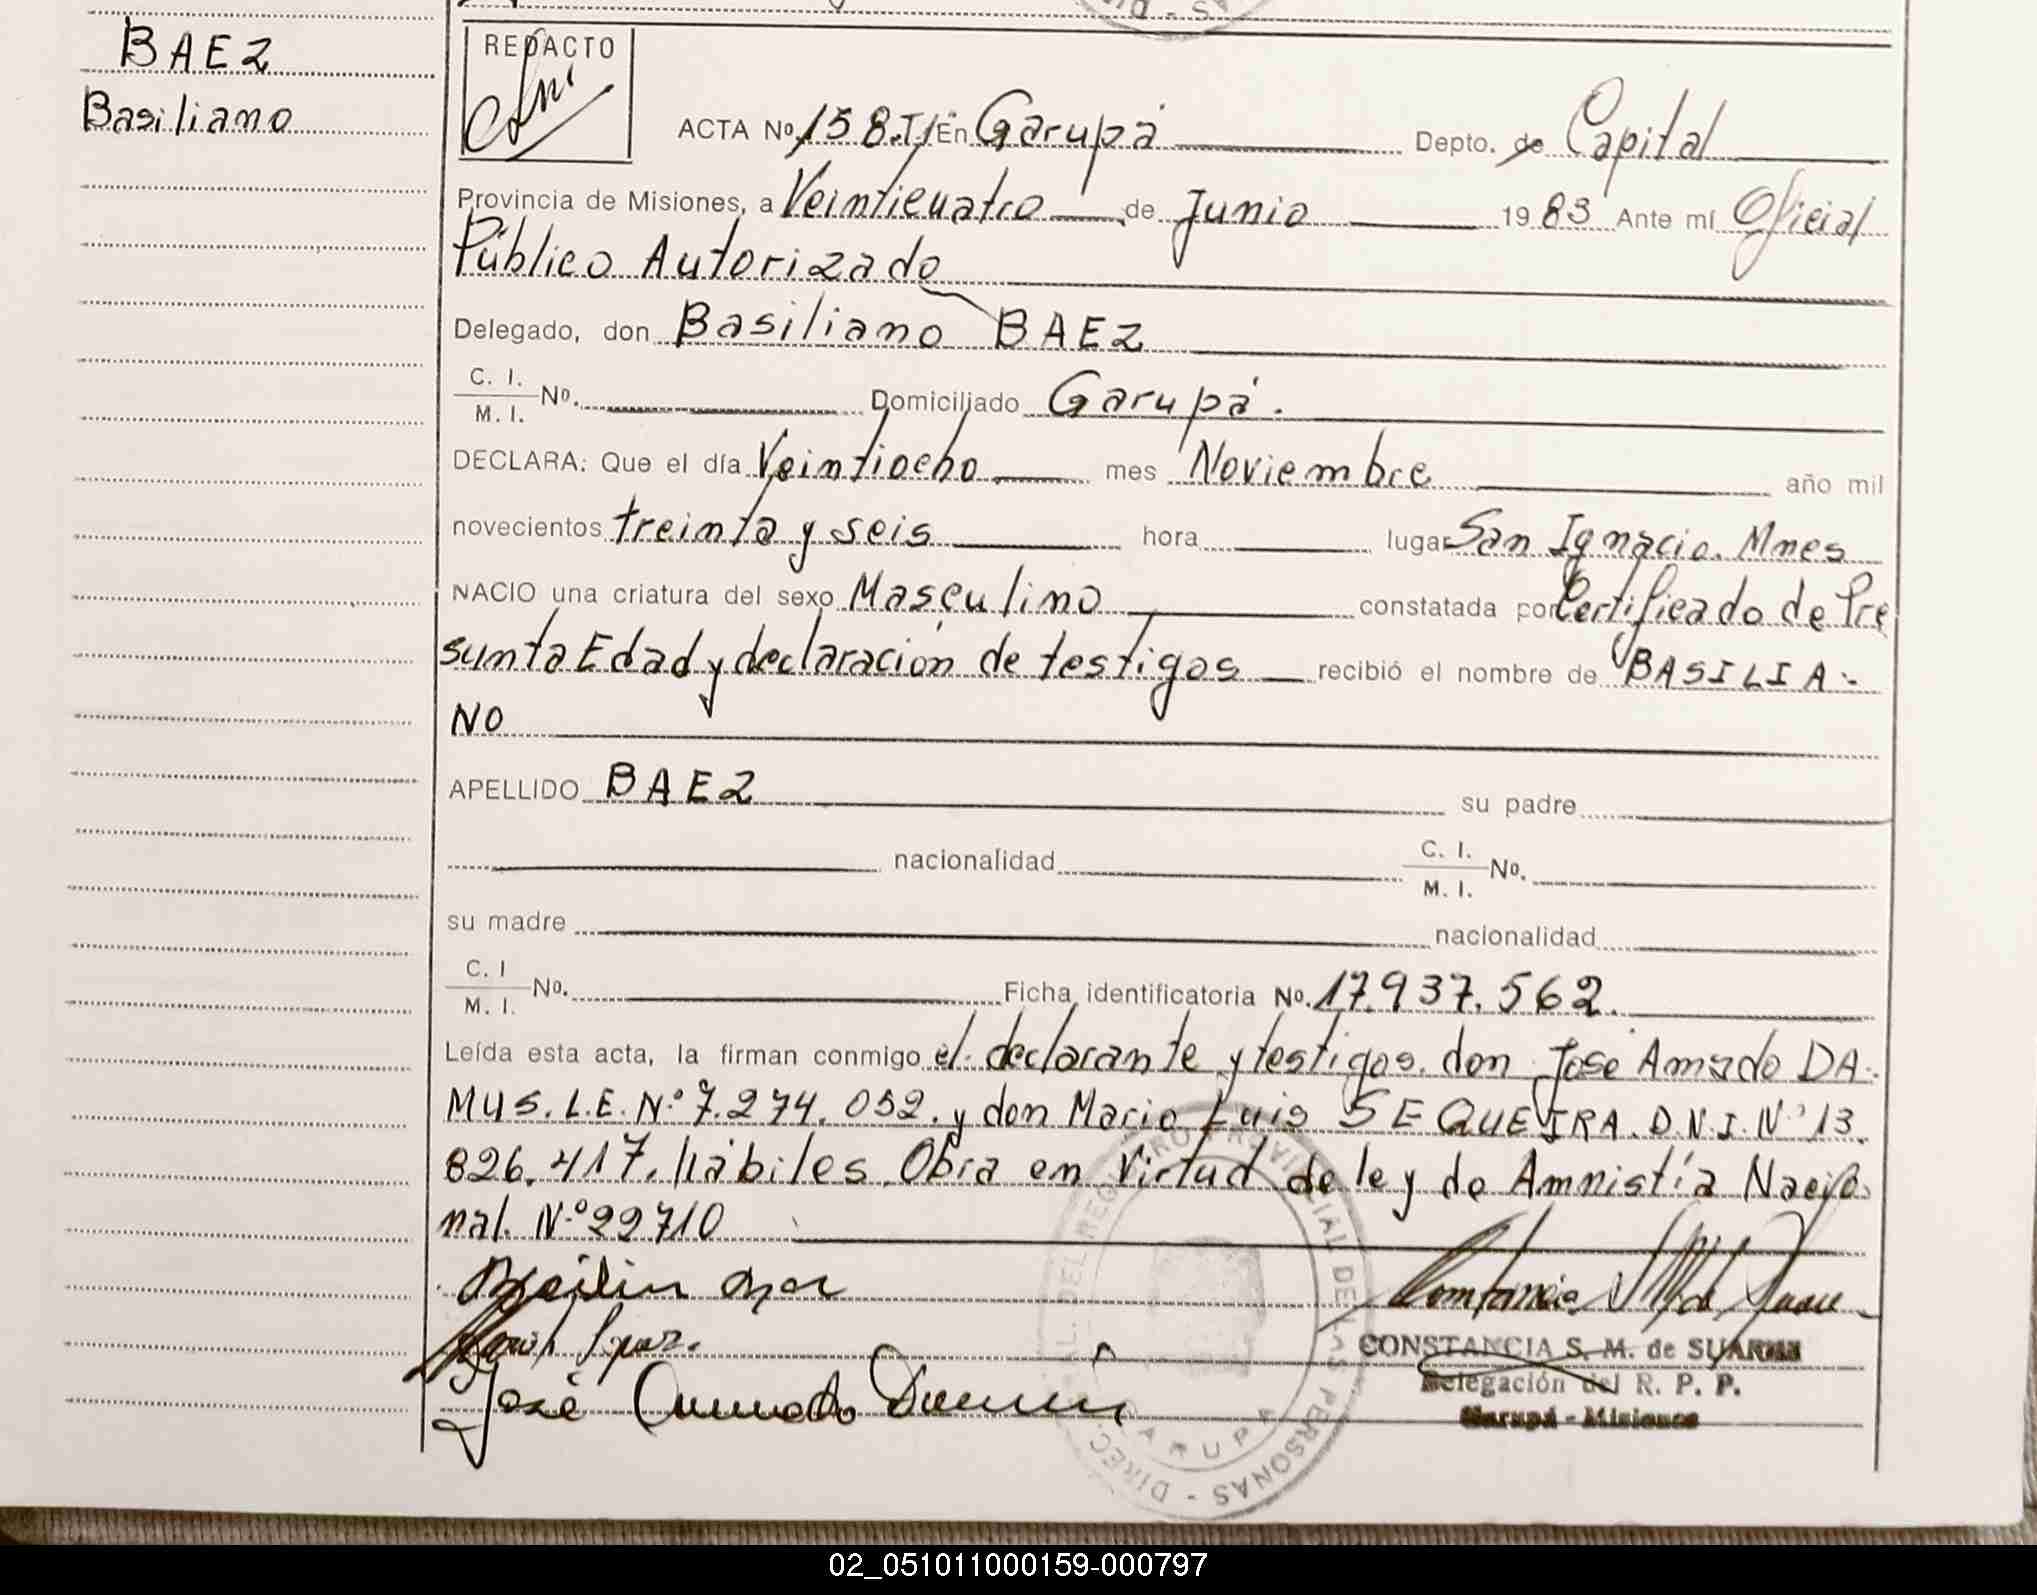 BAEZ
Basiliano
REDACTO
ACTA No. 158.T.I En Garupá Depto. de Capital
Provincia de Misiones, a Veinticuatro de Junio 1983 Ante mí Oficial
Público Autorizado
Delegado, don Basiliano BAEZ
C. I.
M. I. No. Domiciliado Garupá.
DECLARA: Que el día Veintiocho mes Noviembre año mil
novecientos treinta y seis hora lugar San Ignacio. Mnes
NACIO una criatura del sexo Masculino constatada por Certificado de Pre
sunta Edad y declaración de testigos recibió el nombre de BASILIA-
NO
APELLIDO BAEZ su padre
nacionalidad C. I.
M. I. No.
su madre nacionalidad
C. I
M. I. No. Ficha identificatoria No. 17.937.562.
Leída esta acta, la firman conmigo el declarante y testigos. don José Amado DA-
MUS. L.E. N.º 7.274.032. y don Mario Luis SEQUEIRA. D.N.I. Nº 13.
826.417. hábiles. Obra en Virtud de ley de Amnistía Nacio
nal. N.º 22710
José Amado
CONSTANCIA S. M. de SUAREZ
Delegación del R. P. P.
Garupá - Misiones
DIREC. GRAL. DEL REGISTRO PROVINCIAL DE LAS PERSONAS -
GARUPA
02_051011000159-000797